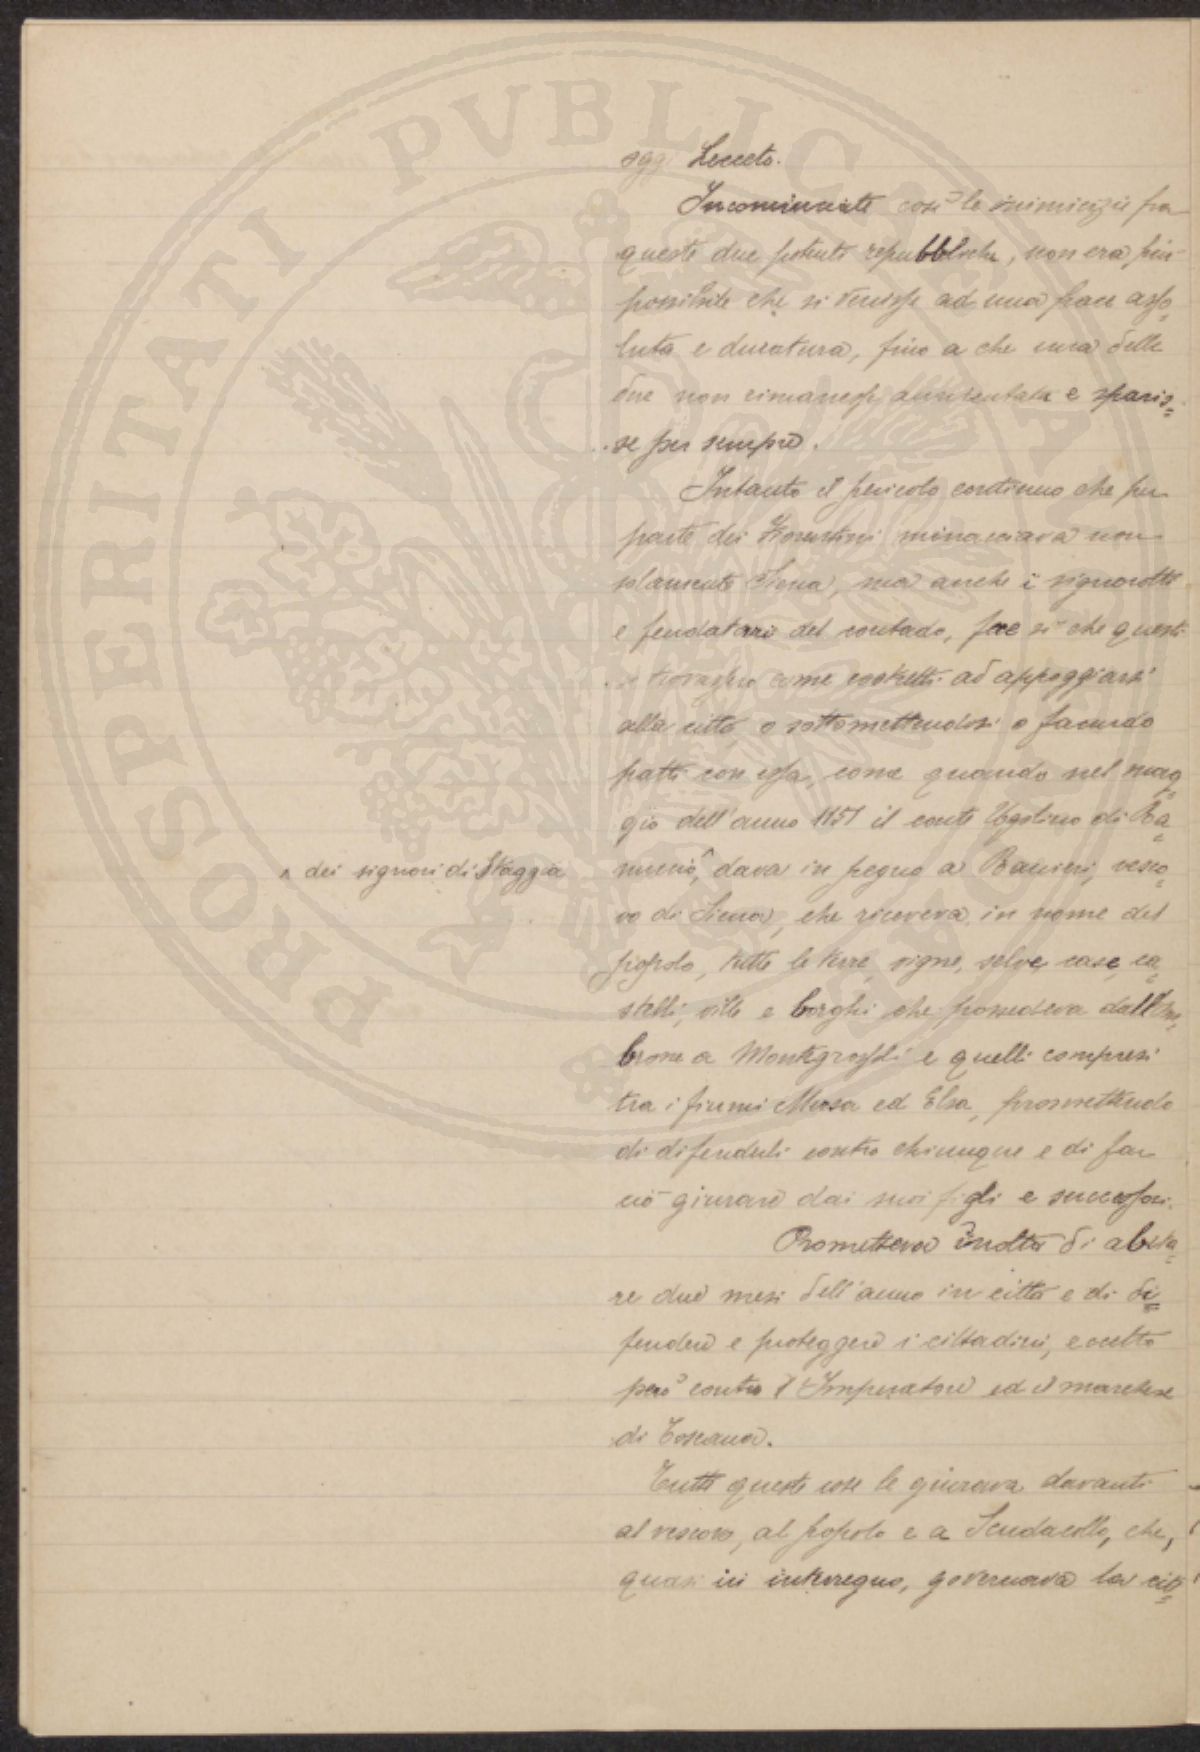 oggi Lecceto.
Incominciate così le inimicizie fra
queste due potenti repubbliche, non era più
possibile che si venisse ad una pace asso=
luta e duratura, fino a che una delle
due non rimanesse annientata e sparis=
se per sempre.
Intanto il pericolo continuo che per
parte dei Fiorentini minacciava non
solamente Siena, ma anche i signorotti
e feudatari del contado, fece sì che questi
si trovassero come costretti ad appoggiarsi
alla città o sottomettendosi o facendo
patti con essa, come quando nel mag=
gio dell'anno 1151 il conte Ugolino di Ra=
^ dei signori di Staggia
nuccio^, dava in pegno a Ranieri, vesco=
vo di Siena, che riceveva in nome del
popolo, tutte le terre, vigne, selve, case, ca=
stelli, ville e borghi che possedeva dall'Om=
brone a Montegrossoli e quelli compresi
tra i fiumi Mersa ed Elsa, promettendo
di difenderli contro chiunque e di far
ciò giurare dai suoi figli e successori.
Prometteva inoltre di abita=
re due mesi dell'anno in città e di di=
fendere e proteggere i cittadini, eccetto
però contro l'Imperatore ed il marchese
di Toscana.
Tutte queste cose le giurava davanti
al vescovo, al popolo e a Scudacollo, che,
quasi in interregno, governava la cit=
PROSPERITATI PVBLICAE